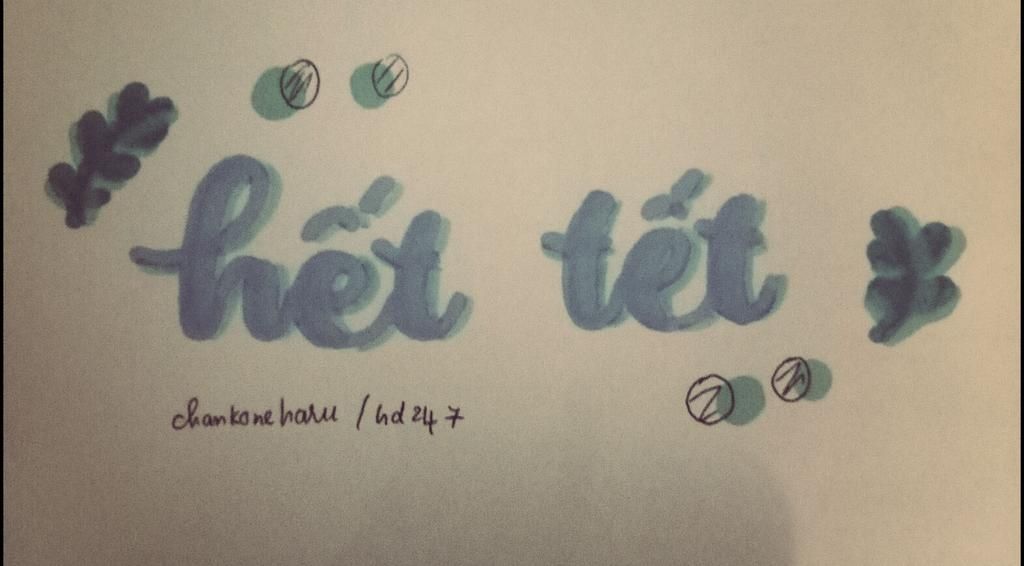 hết tết
chankoneharu / hd 247